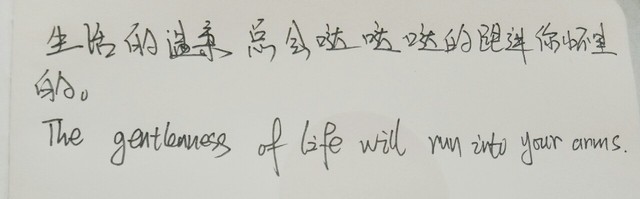 生活的温柔总会哒哒哒的跑进你怀里
的。
The gentlenness of life will run into your arms.